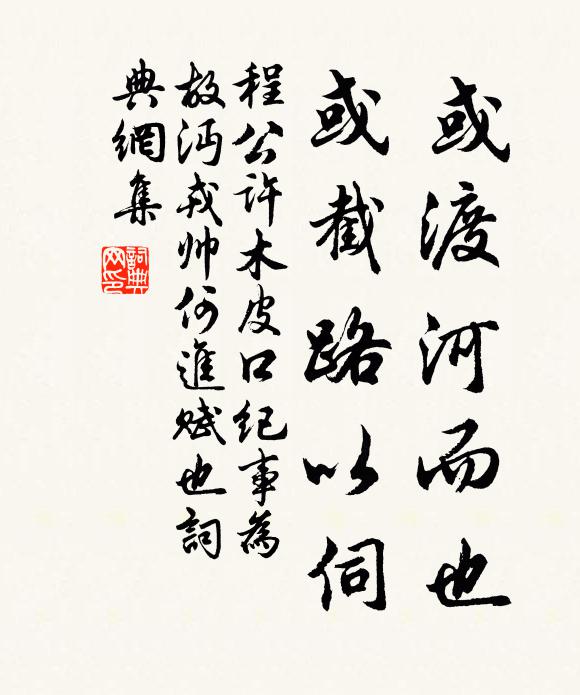 或渡河而也
或截路以伺
程公許木皮口紀事為
故沔戎帅何進賦也詞
典網集
詞典网印